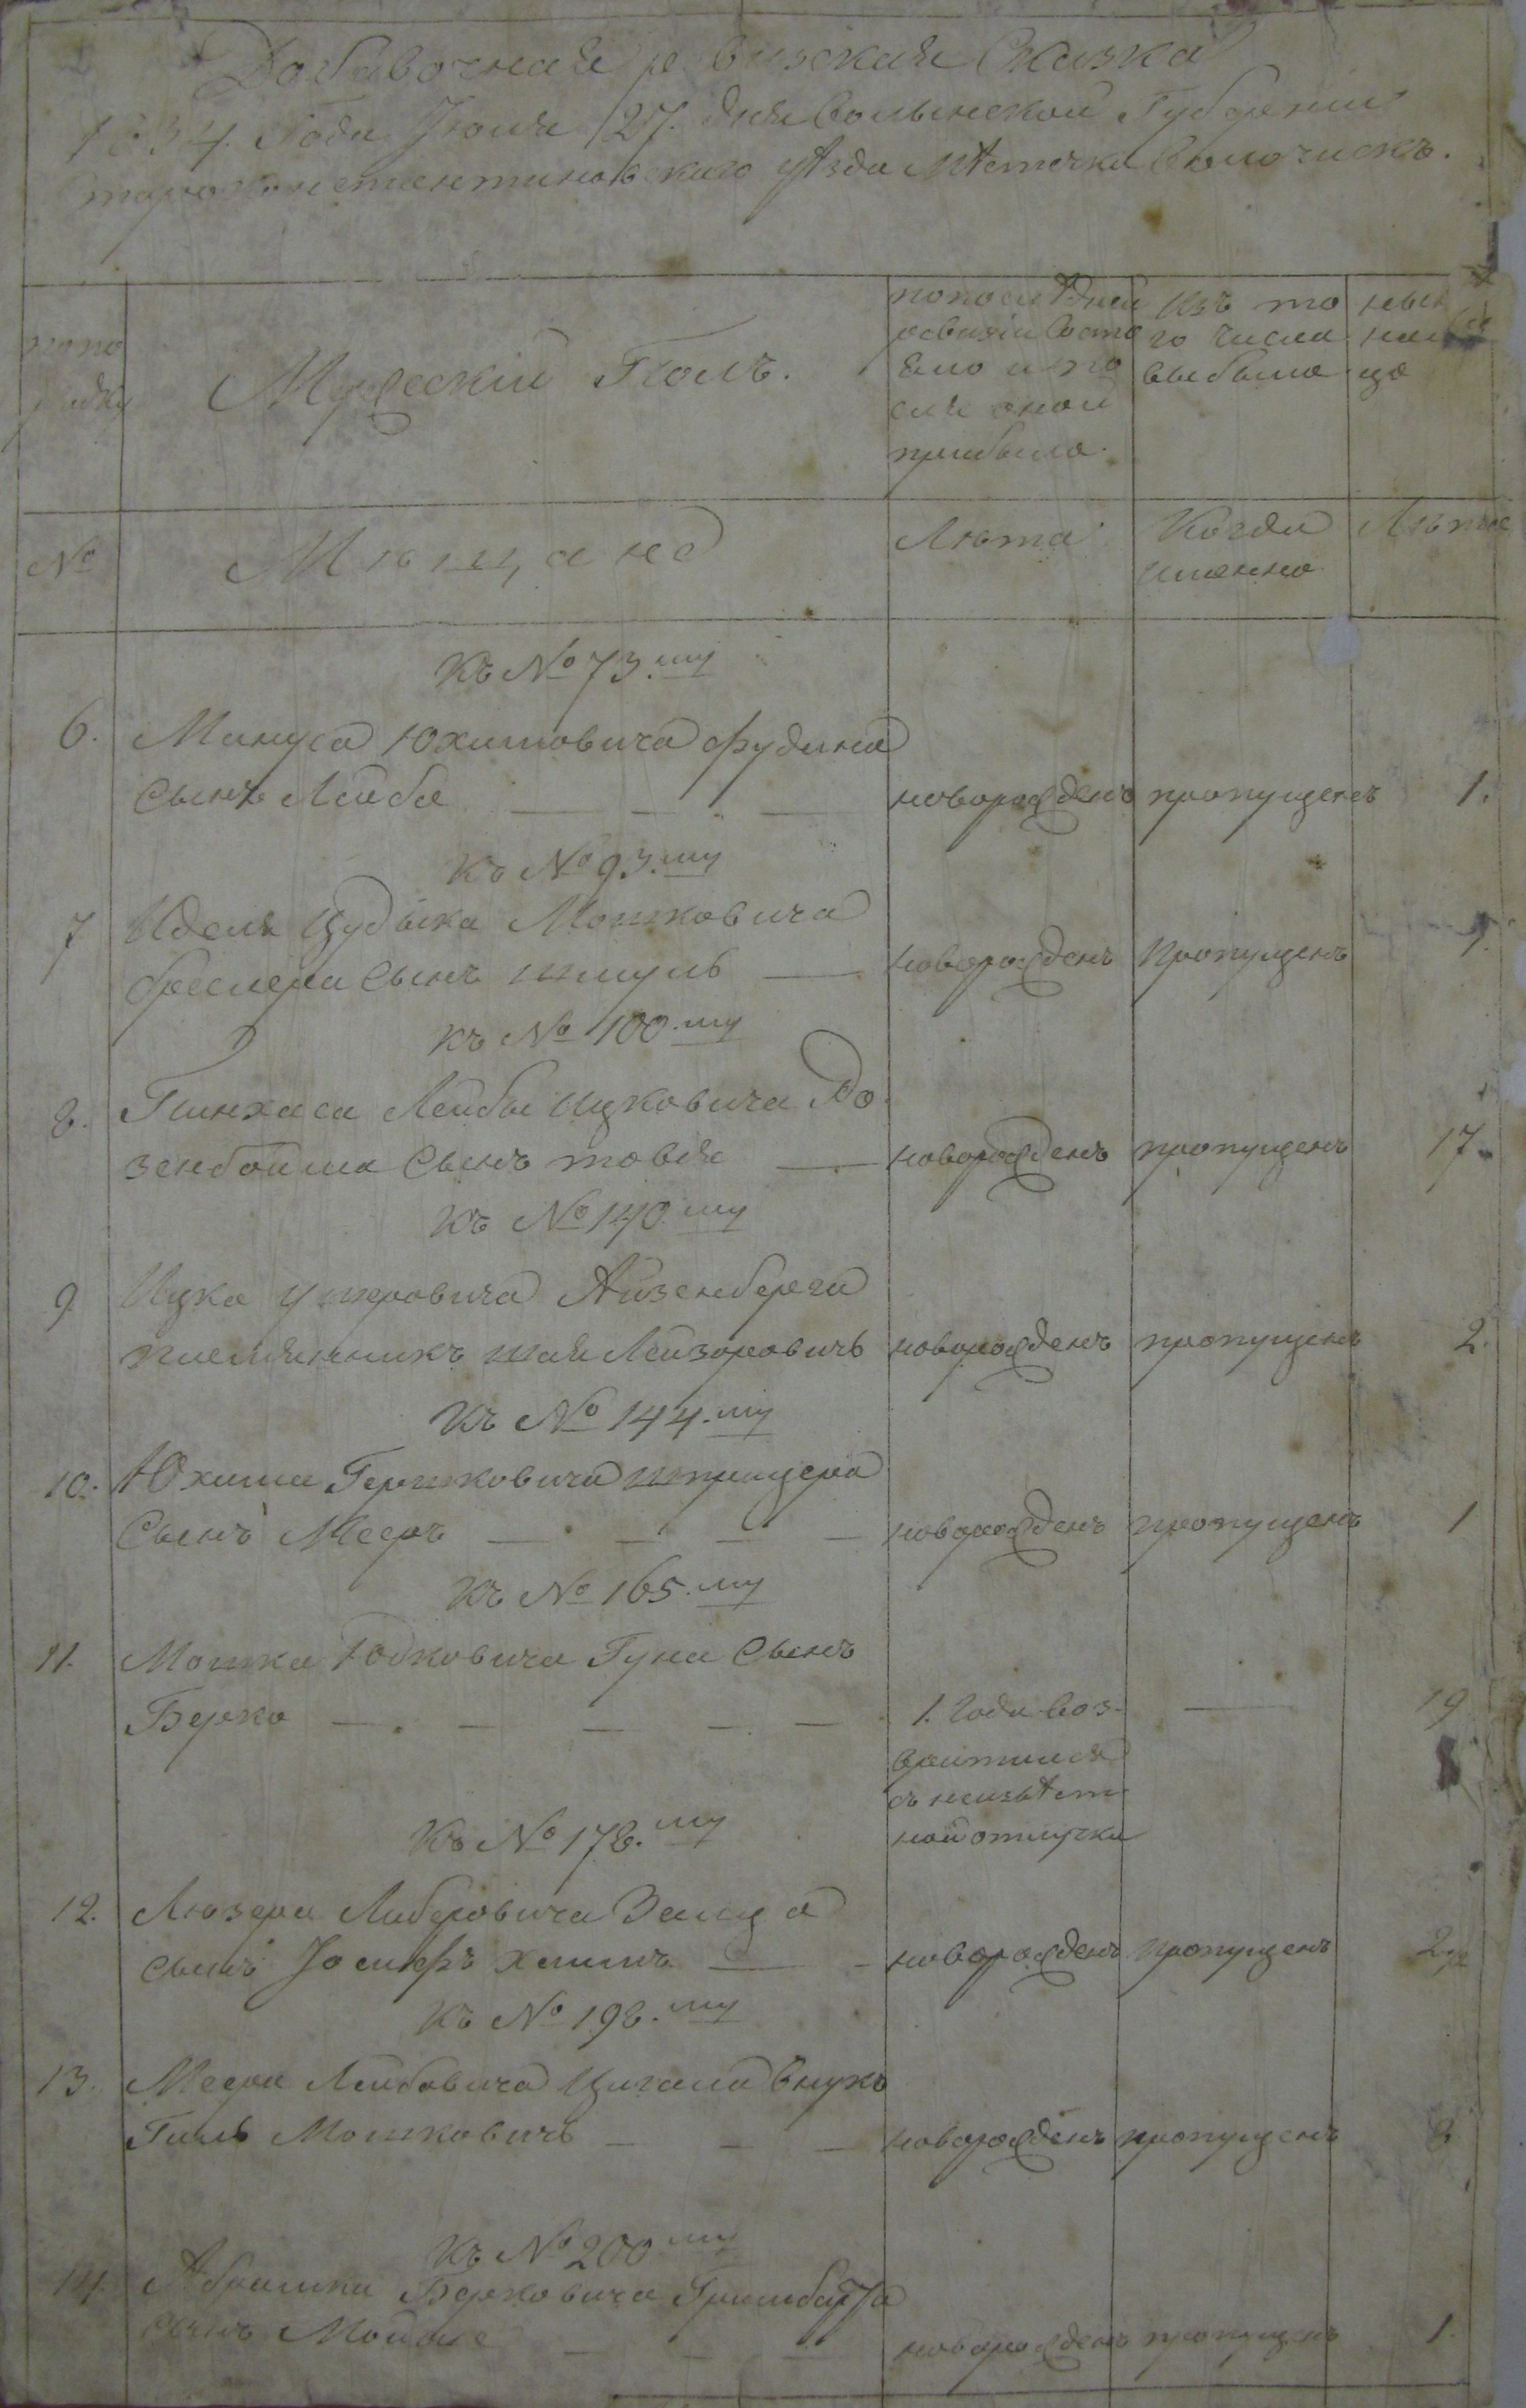 Добавочная ревизская Сказка
1834. Года Июля 27. дня Волынской Губернии
Староконстантиновского уѣзда Мѣстечка Волочискъ.
по по
рядку
Мужескій Полъ.
по последней
ревизіи Состо
яло и по
сле оной
прибыло.
изъ то
го числа
выбыло
нын
цо
№
Мѣщане
Лѣта
Когда
именно
Лѣта
Къ № 73.му
6. Мануса Юхимовича Фудима
Сынъ Лейба новорожденъ пропущенъ 1.
Къ № 93.му
7 Иделя Цудыка Мошковича
Сынъ Шмуль новорожденъ пропущенъ 1.
Къ № 100.му
8. Пинхаса Лейбы Ицковича Ро
зенбойма Сынъ товія новорожденъ пропущенъ 17.
Къ № 140.му
9 Ицка Ушеровича Айзенберга
племянникъ шая Лейзоровичь новорожденъ пропущенъ 2.
Къ № 144.му
10. Юхима Гершковича шприцера
Сынъ Мееръ новорожденъ пропущенъ 1
Къ № 165.му
11. Мошка Юдковича Гуна Сынъ
Берко 1. Года воз- 19
вратился
съ неизвѣст
ной отлучки
Къ № 178.му
12. Люзера Либеровича Замда
сынъ Іосифъ Хаимъ новорожденъ пропущенъ 2
Къ № 198.му
13. Меера Лейбовича Цигана внукъ
Гиль Мошковичъ новорожденъ пропущенъ 8
Къ № 200му
14. Абрамка Берковича Гримбарга
сынъ Мошко новорожденъ пропущенъ 1